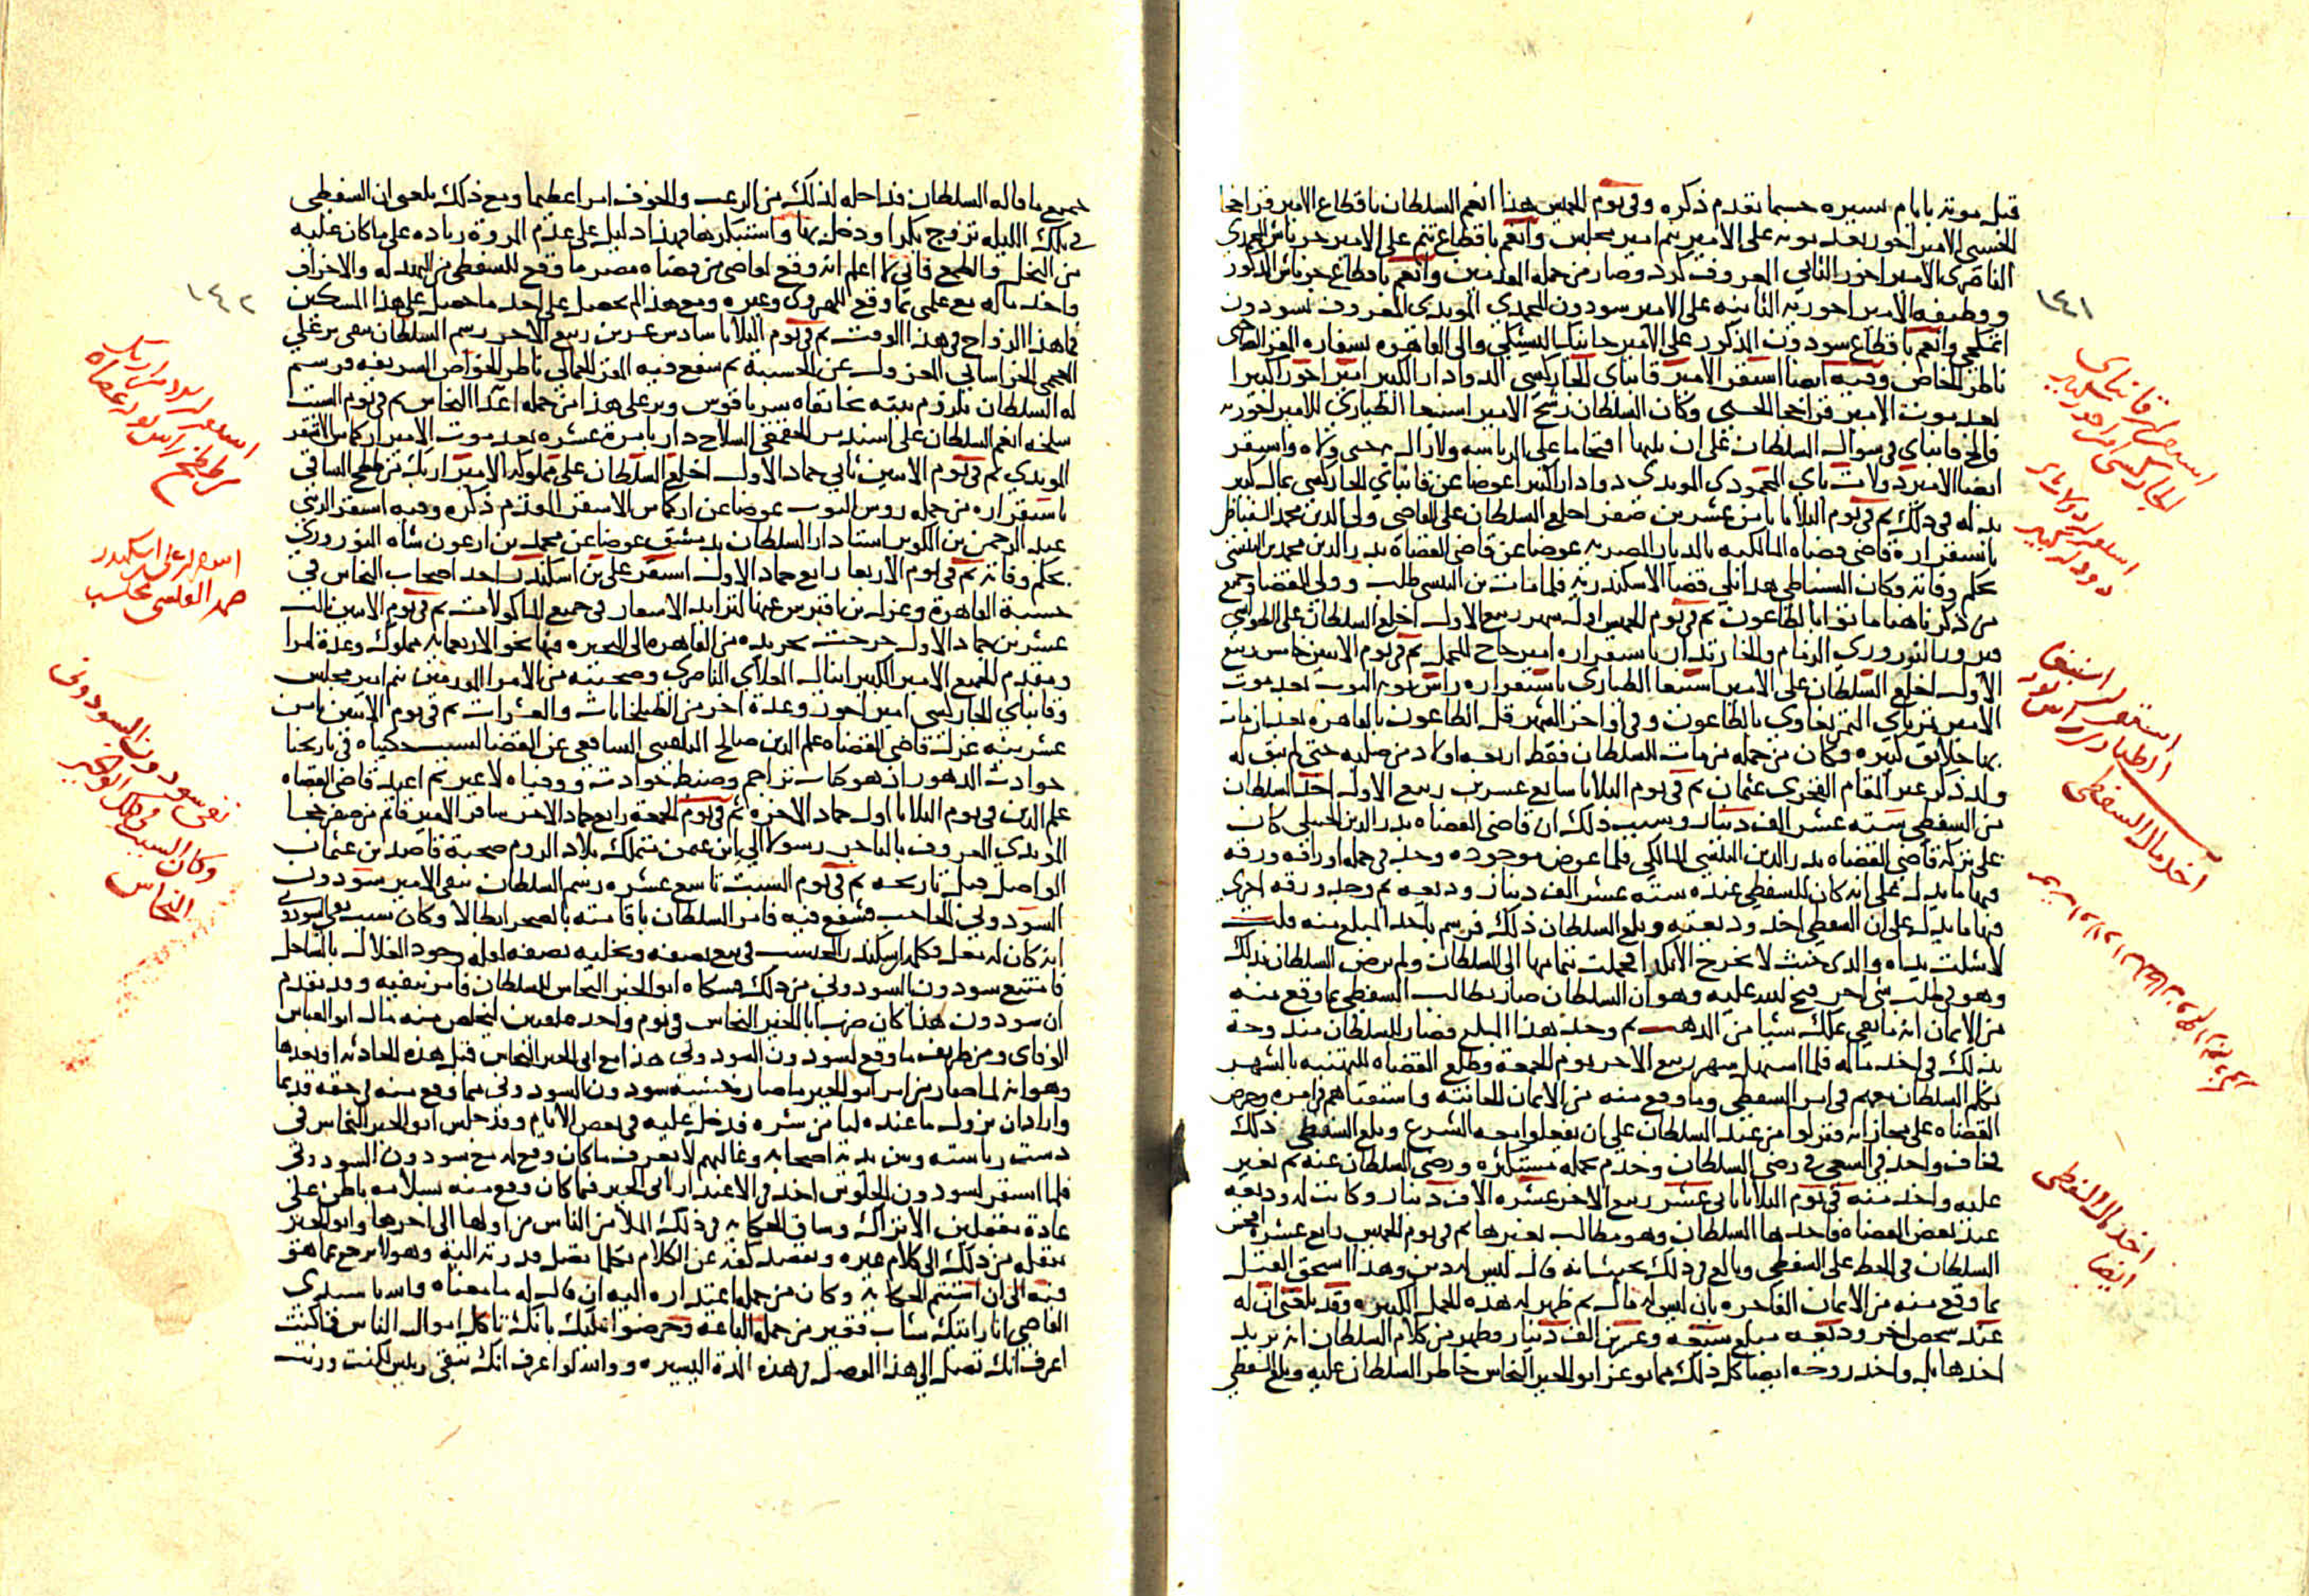 ١٤١
قبل موته بايام يسيره حسبما تقدم ذكره وفى يوم الخميس هذا انعم السلطان باقطاع الامير قراخجا
الحسنى الامير اخور بعد موته على الامير تنم امير مجلس وانعم باقطاع تنم على الامير جرباش المحمدى
الناصرى الامير اخور الثانى المعروف بكرد وصار من جمله المقدمين وانعم باقطاع جرباش المذكور
ووظيفه الامير اخوريه الثانيه على الامير سودون المحمدى المويدى المعروف بسودون
اتمكجى وانعم باقطاع سودون المذكور على الامير جانبك اليشبكى والى القاهره بسفاره المقر الجمالى
ناظر الخاص وفيه ايضا استقر الامير قانباى الجاركسى الدوادار الكبير امير اخور كبيرا
بعد موت الامير قراخجا الحسنى وكان السلطان رشح الامير اسنبغا الطيارى للامير اخوريه
فالح قانباى فى سوال السلطان على ان يليها اقتحاما على الرياسه ولازال حتى ولاه واستقر
ايضا الامير دولات باى المحمودى المويدى دوادارا كبيرا عوضا عن قانباى الجاركسى بمال كبير
بذله فى ذلك ثم فى يوم الثلاثا ثامن عشرين صفر اخلع السلطان على القاضى ولى الدين محمد السنباطى
باستقراره قاضى قضاه المالكيه بالديار المصريه عوضا عن قاضى القضاه بدر الدين محمد بن التنسى
بحكم وفاته وكان السنباطى هذا يلى قضا الاسكندريه فلما مات بن التنسى طلب وولى القضا وجميع
من ذكرناه هنا ماتوا بالطاعون ثم فى يوم الخميس اول شهر ربيع الاول اخلع السلطان على الطواشى
فيروز النوروزى الزمام والخازندار باستقراره امير حاج المحمل ثم فى يوم الاثنين خامس ربيع
الاول اخلع السلطان على الامير اسنبغا الطيارى باستقراره راس نوبه النوب بعد موت
الامير تمرباى التمربغاوى بالطاعون وفى اواخر الشهر قل الطاعون بالقاهره بعد ان مات
بها خلائق كثيره وكان من جمله من مات للسلطان فقط اربعه اولاد من صلبه حتى لم يبق له
ولد ذكر غير المقام الفخرى عثمان ثم فى يوم الثلاثا سابع عشرين ربيع الاول اخذ السلطان
من السفطى سته عشر الف دينار وسبب ذلك ان قاضى القضاه بدر الدين الحنبلى كان
على تركه قاضى القضاه بدر الدين التنسى المالكى فلما عرض موجوده وجد فى جمله اوراقه ورقه
فيها ما يدل على انه كان للسفطى عنده سته عشر الف دينار وديعه ثم وجد ورقه اخرى
فيها ما يدل على ان السفطى اخذ وديعته وبلغ السلطان ذلك فرسم باخذ المبلغ منه قلت
لا شلت يداه والذى خبث لا يخرج الا نكدا فحملت بتمامها الى السلطان ولم يرض السلطان بذلك
وهو فى طلب شى اخر فتح لله عليه وهو ان السلطان صار يطالب السفطى بما وقع منه
من الايمان انه ما بقى يملك شيا من الذهب ثم وجد هذا المبلغ فصار للسلطان مندوحه
بذلك فى اخذ ماله فلما استهل شهر ربيع الاخر يوم الجمعه وطلع القضاه للتهنيه بالشهر
تكلم السلطان معهم فى امر السفطى وما وقع منه من الايمان الحانثه واستفتاهم فى امره وحرض
القضاه على مجازاته فنزلوا من عند السلطان على ان يفعلوا معه الشرع وبلغ السفطى ذلك
فخاف واخذ فى السعى فى رضى السلطان وخدم بجمله مستكثره ورضى السلطان عنه ثم تغير
عليه واخذ منه فى يوم الثلاثا ثانى عشر ربيع الاخر عشره الاف دينار وكانت له وديعه
عند بعض القضاه فاخذها السلطان وهو مطالب بغيرها ثم فى يوم الخميس رابع عشره افحش
السلطان فى الحط على السفطى وبالغ فى ذلك بحيث انه قال ليس له دين وهذا استحق القتل
بما وقع منه من الايمان الفاجره بان ليس له مال ثم ظهر له هذه الجمل الكثيره وقد بلغنى ان له
عند شخص اخر وديعه مبلغ سبعه وعشرين الف دينار وظهر من كلام السلطان انه يريد
اخذها بل واخذ روحه ايضا كل ذلك مما يوغر ابو الخير النحاس خاطر السلطان عليه وبلغ السفطى
استقرار قانباى
الجاركسى امير اخور كبير
استقرار دولات باى
دوادار كبير
استقرار اسنبغا
الطيارى راس نوبه
اخذ مال السفطى
اخذ مال السفطى
ايضا
١٤٢
جميع ما قاله السلطان فداخله لذلك من الرعب والخوف امر اعظيما ومع ذلك بلغنى ان السفطى
فى تلك الليله تزوج بكرا ودخل بها واستبكرها فهذا دليل على عدم المروة زياده على ما كان عليه
من البخل والطمع فانى ما اعلم انه وقع لقاضى من قضاه مصر ما وقع للسفطى من البهدله والاخراق
واخذ ماله مع علمى بما وقع للهروى وغيره ومع هذا لم يحصل على احد ما حصل على هذا المسكين
فما هذا الزواج فى هذا الوقت ثم فى يوم الثلاثا سادس عشرين ربيع الاخر رسم السلطان بنفى يرعلى
العجمى الخراسانى المعزول عن الحسبة ثم شفع فيه المقر الجمالى ناظر الخواص الشريفه فرسم
له السلطان بلزوم بيته بخانقاه سرياقوس ويرعلى هذا من جمله اعدا النحاس ثم فى يوم السبت
سلخه انعم السلطان على اسندمر الجقمقى السلاح دار بامرة عشره بعد موت الامير اركماس الاشقر
المويدى ثم فى يوم الاثنين ثانى جماد الاول اخلع السلطان على مملوكه الامير ازبك من ططخ الساقى
باستقراره من جمله روس النوب عوضا عن اركماس الاشقر المقدم ذكره وفيه استقر الزينى
عبد الرحمن بن الكويز استادار السلطان بدمشق عوضا عن محمد بن ارغون شاه النوروزى
بحكم وفاته ثم فى يوم الاربعا رابع جماد الاول استقر على بن اسكندر احد اصحاب النحاس فى
حسبة القاهرة وعزله بن اقبرس عنها لتزايد الاسعار فى جميع الماكولات ثم فى يوم الاثنين ثالث
عشرين جماد الاول خرجت تجريده من القاهره الى البحيره فيها نحو الاربعمايه مملوك وعدة امرا
ومقدم الجميع الامير الكبير اينال العلاى الناصرى وصحبته من الامرا المقدمين تنم امير مجلس
وقانباى الجاركسى امير اخور وعدة اخر من الطبلخانات والعشرات ثم فى يوم الاثنين ثامن
عشرينه عزل قاضى القضاه علم الدين صالح البلقينى الشافعى عن القضا لسبب حكيناه فى تاريخنا
حوادث الدهور اذ هو كتاب تراجم وضبط حوادث ووفياه لا غير ثم اعيد قاضى القضاه
علم الدين فى يوم الثلاثا اول جماد الاخره ثم فى يوم الجمعه رابع جماد الاخر سافر الامير قانم من صفر خجا
المويدى المعروف بالتاجر رسولا الى ابن عثمن متملك بلاد الروم صحبة قاصد بن عثمان
الواصل قبل تاريخه ثم فى يوم السبت تاسع عشره رسم السلطان بنفى الامير سودون
السودونى الحاجب فشفع فيه فامر السلطان باقامته بالصحرا بطالا وكان سبب نفى السودونى
انه كان له مغل فكلمه اسكندر المحتسب فى بيع نصفه وتخليه نصفه لقله وجود الغلال بالساحل
فامتنع سودون السودونى من ذلك فشكاه ابو الخير النحاس للسلطان فامر بنفيه وقد تقدم
ان سودون هذا كان ضرب ابا الخير النحاس فى يوم واحد علقتين ليخلص منه مال ابو العباس
الوفاى ومن ظريف ما وقع لسودون السودونى هذا مع ابى الخير النحاس قبل هذه الحادثه او بعدها
وهو انه لما صار من امر ابو الخير ما صار خشيه سودون السودونى مما وقع منه فى حقه قديما
واراد ان يزول ما عنده ليامن شره فدخل عليه فى بعض الايام وقد جلس ابو الخير النحاس فى
دست رياسته وبين يديه اصحابه وغالبهم لا يعرف ما كان وقع له مع سودون السودونى
فلما استقر لسودون الجلوس اخذ فى الاعتذار لابى الخير فيما كان وقع منه بسلامه باطن على
عادة مغفلين الاتراك وساق الحكايه فى ذلك الملا من الناس من اولها الى اخرها وابو الخير
ينقله من ذلك الى كلام غيره ويقصد كفه عن الكلام بكلما تصل قدرته اليه وهو لا يرجع عما هو
فيه الى ان استتم الحكايه وكان من جمله اعتذاره اليه ان قال له ما معناه والله يا سيدى
القاضى انا رايتك شاب فقير من جمله الباعة وحرضوا عليك بانك تاكل اموال الناس فما كنت
اعرف انك تصل الى هذا الموصل فى هذه المدة اليسيره ووالله لو اعرف انك تبقى رييس لكنت وزنت
استقرار ازبك من
ططخ راس نوبه
استقرار على بن اسكندر
محتسب
نفى سودون السودونى
وكان السبب فى ذلك ابو الخير
النحاس